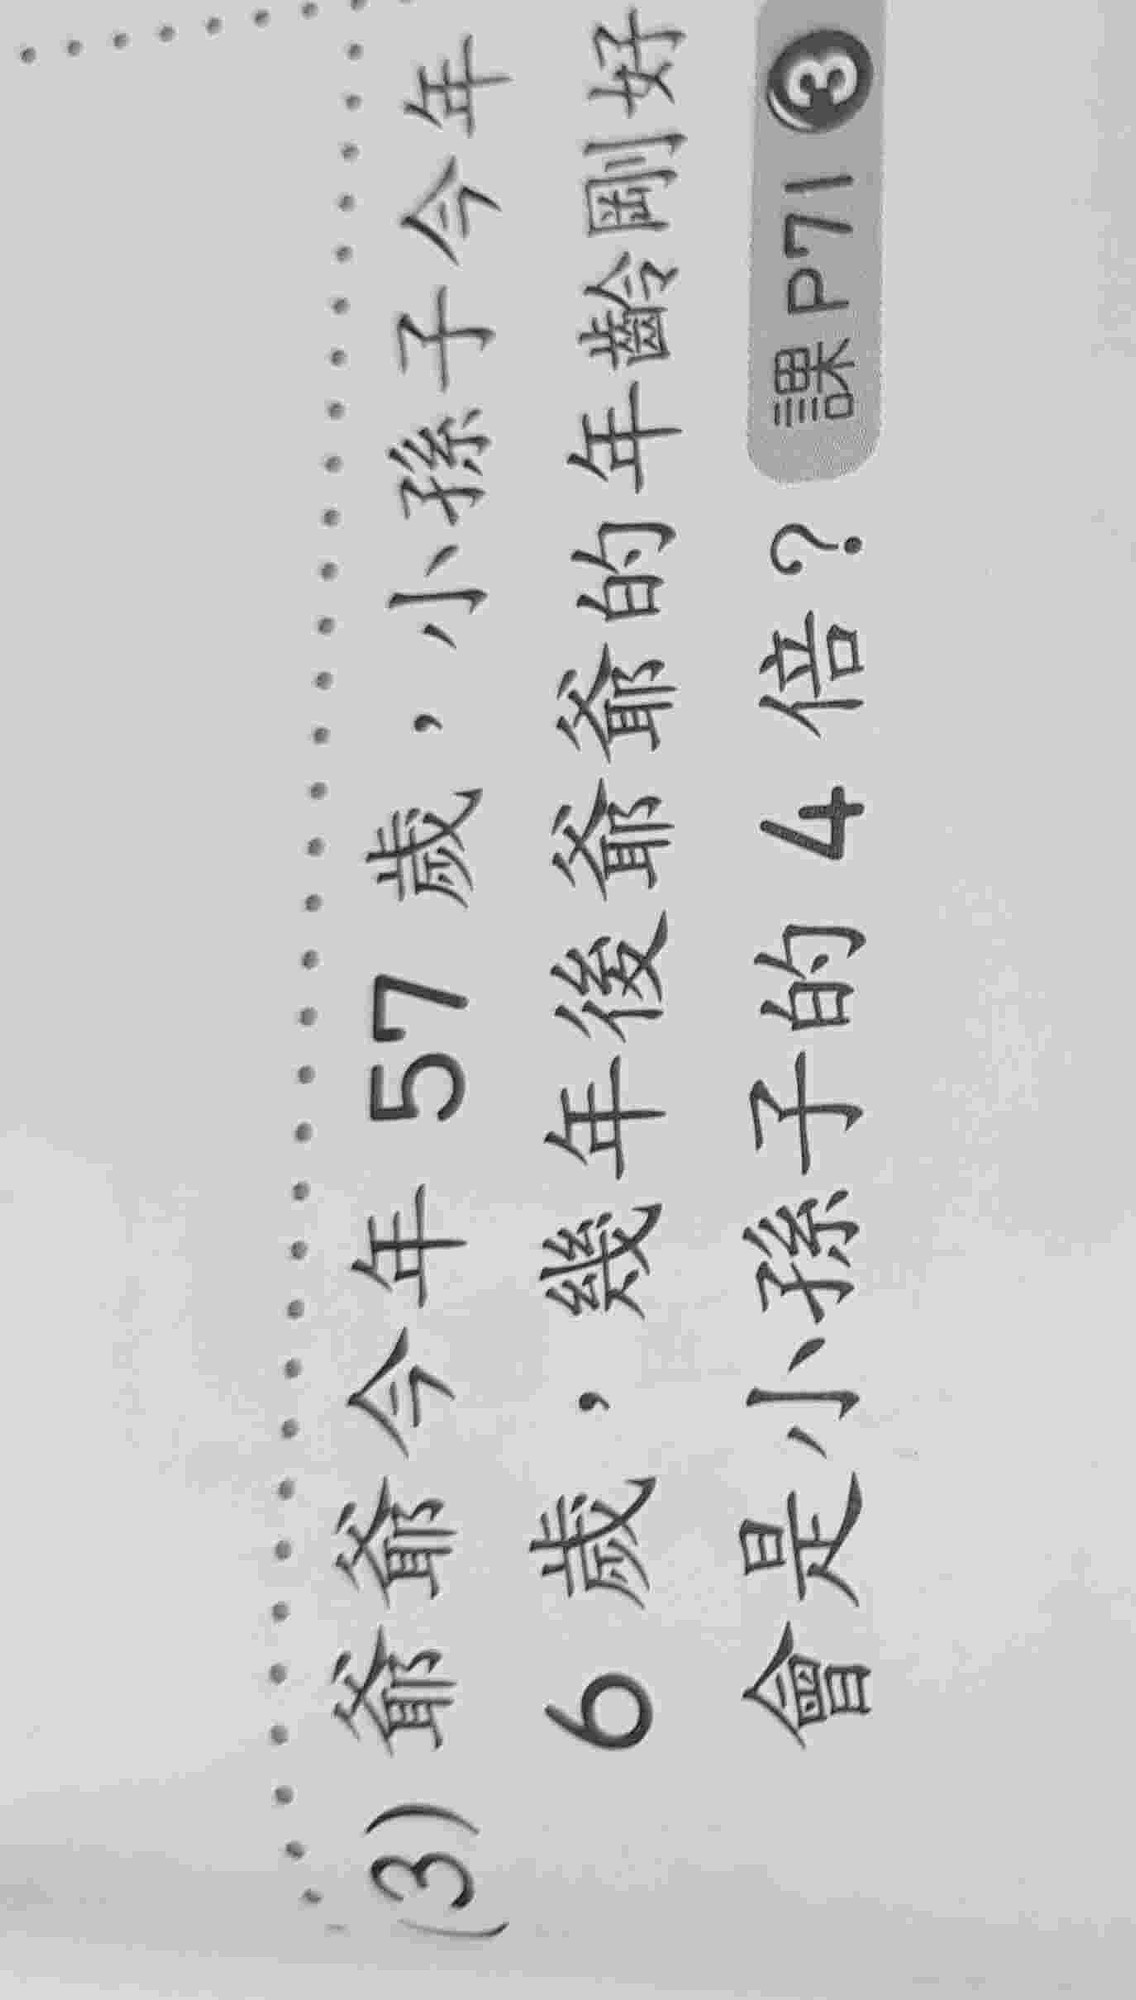 (3) 爺爺今年 57 歲，小孫子今年
6 歲，幾年後爺爺的年齡剛好
會是小孫子的 4 倍？ 課 P71 ❸